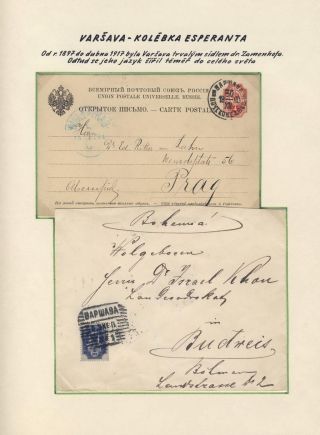 VARŠAVA - KOLÉBKA ESPERANTA
Od r. 1897 do dubna 1917 byla Varšava trvalým sídlem dr. Zamenhofa.
Odtud se jeho jazyk šířil téměř do celého světa
ВСЕМІРНЫЙ ПОЧТОВЫЙ СОЮЗЪ. РОССІЯ.
UNION POSTALE UNIVERSELLE. RUSSIE.
ОТКРЫТОЕ ПИСЬМО. — CARTE POSTALE
Dr Ed.
56
Prag
Bohemia
Wolgeboren
Herrn Dr Israel Khon
Landesadvokat
in
Budweis
Böhmen
Landstrasse № 2
ВАРШАВА